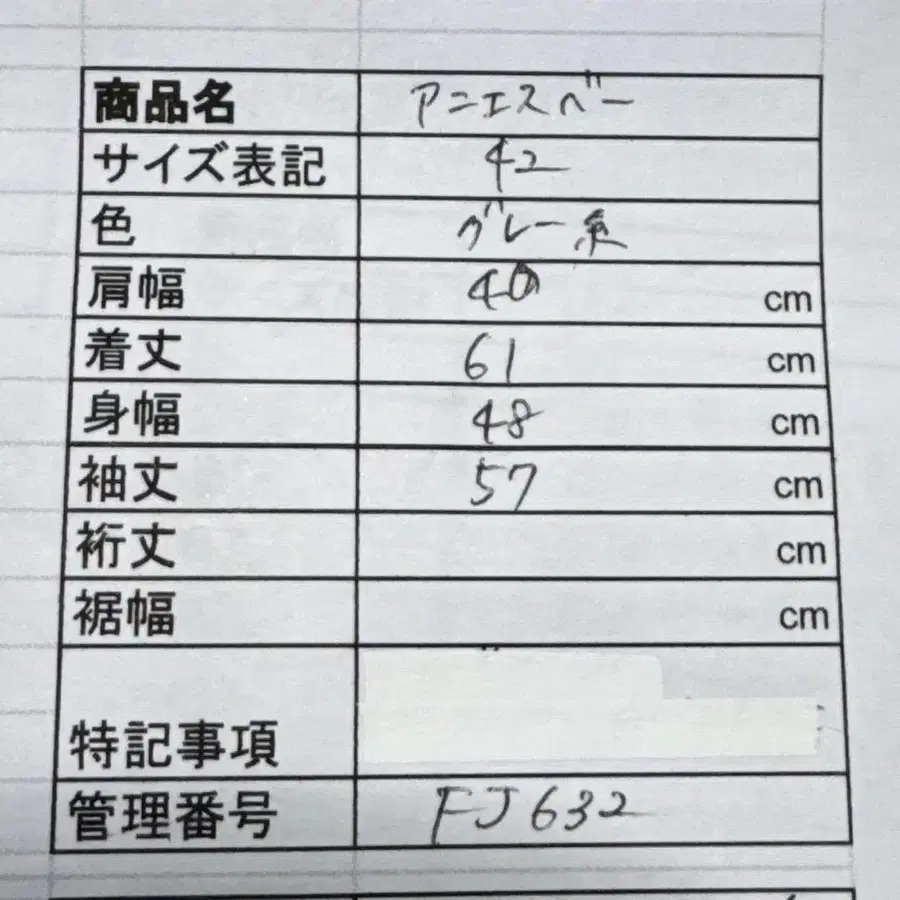 商品名 アニエスベー
サイズ表記 42
色 グレー系
肩幅 40 cm
着丈 61 cm
身幅 48 cm
袖丈 57 cm
裄丈 cm
裾幅 cm
特記事項
管理番号 FJ632